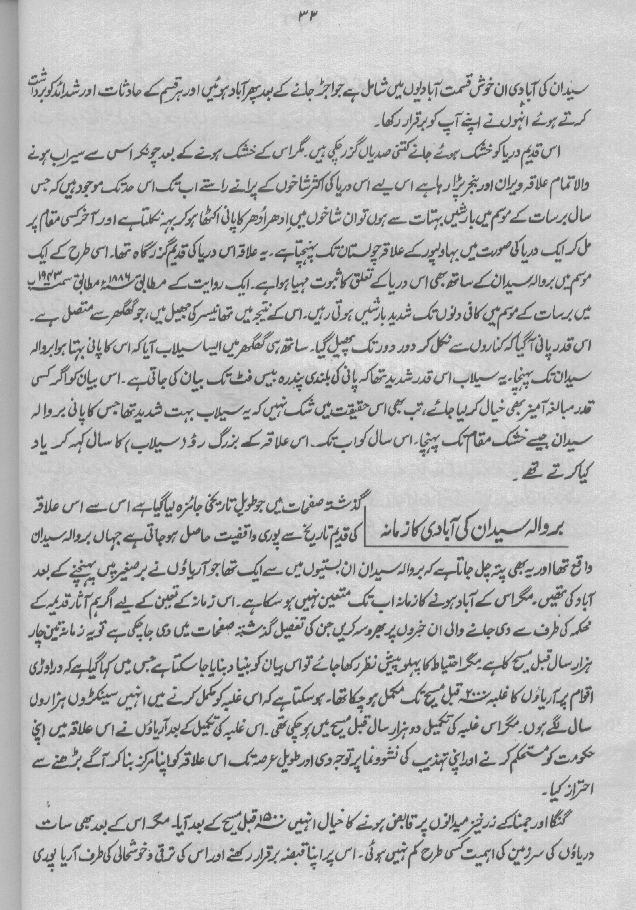 ۳۳
سیدان کی آبادی ان خوش قسمت آبادیوں میں شامل ہے جو اجڑ جانے کے بعد پھر آباد ہوئیں اور ہر قسم کے حادثات اور شدائد کو برداشت
کرتے ہوئے انہوں نے اپنے آپ کو برقرار رکھا۔
اس قدیم دریا کو خشک ہوئے جانے کتنی صدیاں گزر چکی ہیں۔ مگر اس کے خشک ہونے کے بعد چونکہ اس سے سیراب ہونے
والا تمام علاقہ ویران اور بنجر پڑا رہا ہے اس لیے اس دریا کی اکثر شاخوں کے پرانے راستے اب تک اس حد تک موجود ہیں کہ جس
سال برسات کے موسم میں بارشیں بہتات سے ہوں تو ان شاخوں میں ادھر اُدھر کا پانی اکٹھا ہو کر بہہ نکلتا ہے اور آخر کسی مقام پر
مل کر ایک دریا کی صورت میں بہاولپور کے علاقہ چولستان تک پہنچتا ہے۔ یہ علاقہ اس دریا کی قدیم گزرگاہ تھا۔ اسی طرح کے ایک
موسم میں بروالہ سیدان کے ساتھ بھی اس دریا کے تعلق کا ثبوت مہیا ہوا ہے۔ ایک روایت کے مطابق ۱۸۸۶ء مطابق سمت ۱۹۴۳ ب
میں برسات کے موسم میں کافی دنوں تک شدید بارشیں ہوتی رہیں۔ اس کے نتیجہ میں تھانیسر کی جھیل میں، جو گھگھر سے متصل ہے۔
اس قدر پانی آگیا کہ کناروں سے نکل کر دور دور تک پھیل گیا۔ ساتھ ہی گھگھر میں ایسا سیلاب آیا کہ اس کا پانی بہتا ہوا بروالہ
سیدان تک پہنچا۔ یہ سیلاب اس قدر شدید تھا کہ پانی کی بلندی پندرہ بیس فٹ تک بیان کی جاتی ہے۔ اس بیان کو اگر کسی
قدر مبالغہ آمیز بھی خیال کر لیا جائے، تب بھی اس حقیقت میں شک نہیں کہ یہ سیلاب بہت شدید تھا جس کا پانی بروالہ
سیدان جیسے خشک مقام تک پہنچا۔ اس سال کو اب تک۔ اس علاقہ کے بزرگ رڈ (سیلاب) کا سال کہہ کر یاد
کیا کرتے تھے۔
بروالہ سیدان کی آبادی کا زمانہ
گذشتہ صفحات میں جو طویل تاریخی جائزہ لیا گیا ہے اس سے اس علاقہ
کی قدیم تاریخ سے پوری واقفیت حاصل ہو جاتی ہے جہاں بروالہ سیدان
واقع تھا اور یہ بھی پتہ چل جاتا ہے کہ بروالہ سیدان ان بستیوں میں سے ایک تھا جو آریاؤں نے برصغیر میں پہنچنے کے بعد
آباد کی تھیں۔ مگر اس کے آباد ہونے کا زمانہ اب تک متعین نہیں ہو سکا ہے۔ اس زمانہ کے تعین کے لیے اگر ہم آثار قدیمہ کے
محکمہ کی طرف سے دی جانے والی ان خبروں پر بھروسہ کریں جن کی تفصیل گذشتہ صفحات میں دی جا چکی ہے تو یہ زمانہ تین چار
ہزار سال قبل مسیح کا ہے مگر احتیاط کا پہلو پیش نظر رکھا جائے تو اس بیان کو بنیاد بنایا جا سکتا ہے جس میں کہا گیا ہے کہ دراوڑی
اقوام پر آریاؤں کا غلبہ ۲۰۰۰ قبل مسیح تک مکمل ہو چکا تھا۔ ہو سکتا ہے کہ اس غلبہ کو مکمل کرنے میں انہیں سینکڑوں ہزاروں
سال لگے ہوں۔ مگر اس غلبہ کی تکمیل دو ہزار سال قبل مسیح میں ہو چکی تھی۔ اس غلبہ کی تکمیل کے بعد آریاؤں نے اس علاقہ میں اپنی
حکومت کو مستحکم کرنے اور اپنی تہذیب کی نشوونما پر توجہ دی اور طویل عرصہ تک اس علاقہ کو اپنا مرکز بنا کر آگے بڑھنے سے
احتراز کیا۔
گنگا اور جمنا کے زرخیز میدانوں پر قابض ہونے کا خیال انہیں ۱۵۰۰ قبل مسیح کے بعد آیا۔ مگر اس کے بعد بھی سات
دریاؤں کی سرزمین کی اہمیت کسی طرح کم نہیں ہوئی۔ اس پر اپنا قبضہ برقرار رکھنے اور اس کی ترقی و خوشحالی کی طرف آریا پوری